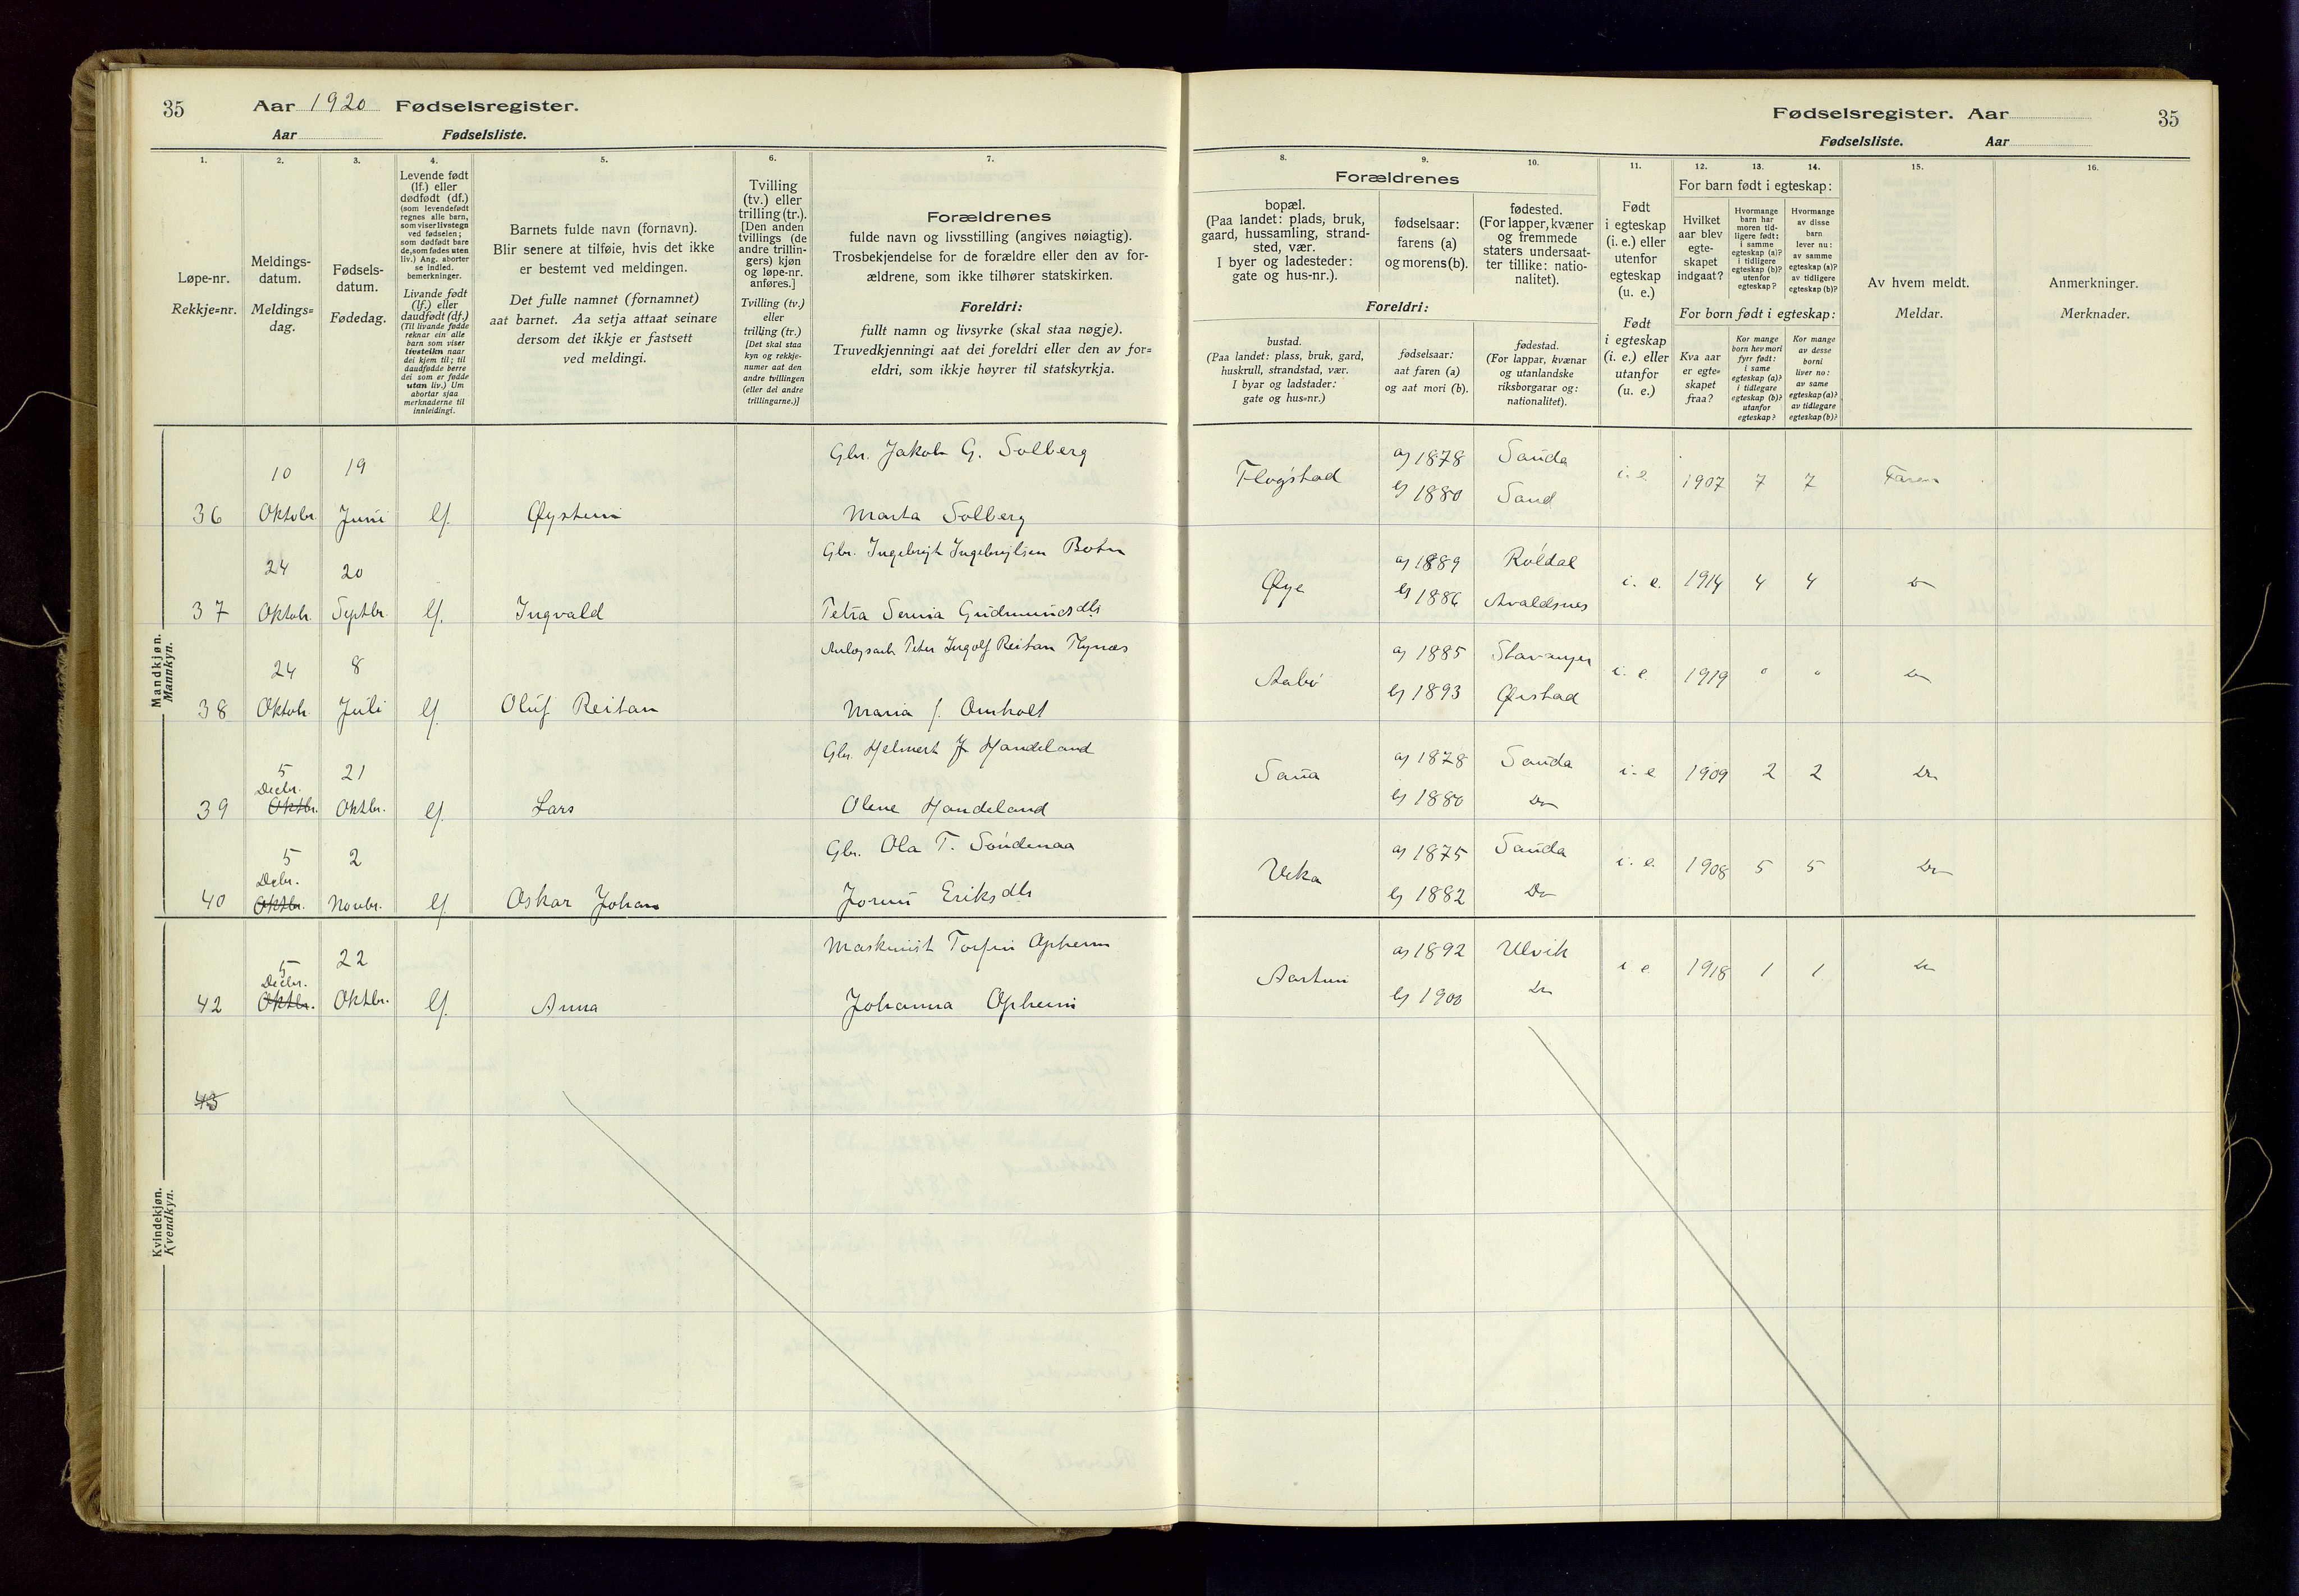 35 Aar 1920 Fødselsregister.
Aar Fødselsliste.
1. 2. 3. 4. 5. 6. 7.
Løpe-nr.
Rekkje=nr.
Meldings-
datum.
Meldings=
dag.
Fødsels-
datum.
Fødedag.
Levende født
(lf.) eller
dødfødt (df.)
(som levendefødt
regnes alle barn,
som viser livstegn
ved fødselen;
som dødfødt bare
de, som fødes uten
liv.) Ang. aborter
se indled.
bemerkninger.
Livande født
(lf.) eller
daudfødt (df.)
(Til livande fødde
reknar ein alle
barn som viser
livsteikn naar
dei kjem til; til
daudfødde berre
dei som er fødde
utan liv.) Um
abortar sjaa
merknaderne til
innleidingi.
Barnets fulde navn (fornavn).
Blir senere at tilføie, hvis det ikke
er bestemt ved meldingen.
Det fulle namnet (fornamnet)
aat barnet. Aa setja attaat seinare
dersom det ikkje er fastsett
ved meldingi.
Tvilling
(tv.) eller
trilling (tr.).
[Den anden
tvillings (de
andre trillin-
gers) kjøn
og løpe-nr.
anføres.]
Tvilling (tv.)
eller
trilling (tr.)
[Det skal staa
kyn og rekkje-
numer aat den
andre tvillingen
(eller dei andre
trillingarne.)]
Forældrenes
fulde navn og livsstilling (angives nøiagtig).
Trosbekjendelse for de forældre eller den av for-
ældrene, som ikke tilhører statskirken.
Foreldri:
fullt namn og livsyrke (skal staa nøgje).
Truvedkjenningi aat dei foreldri eller den av for=
eldri, som ikkje høyrer til statskyrkja.
Mandkjøn.
Mannkyn.
10 19 Gbr. Jakob G. Solberg
36 Oktobr. Juni lf. Øystein Marta Solberg
24 20 Gbr. Ingebrigt Ingebrigtsen Botn
37 Oktobr. Septbr. lf. Ingvald Petra Serina Gudmundsdtr
24 8 Anlægsarb. Peter Ingolf Reitan Flynæs
38 Oktobr. Juli lf. Oluf Reitan Maria f. Omholt
5 21 Gbr. Helmert J. Handeland
Decbr.
39 Oktbr. Oktbr. lf. Lars Olene Handeland
5 2 Gbr. Ola T. Söndenaa
Decbr.
40 Oktbr. Novbr. lf. Oskar Johan Jorun Eriksdtr
Kvindekjøn.
Kvendkyn.
5 22 Maskinist Torfin Opheim
Decbr.
42 Oktbr. Oktbr. lf. Anna Johanna Opheim
43
Fødselsregister. Aar 35
Fødselsliste. Aar
8. 9. 10. 11. 12. 13. 14. 15. 16.
Forældrenes
bopæl.
(Paa landet: plads, bruk,
gaard, hussamling, strand-
sted, vær.
I byer og ladesteder:
gate og hus-nr.).
fødselsaar:
farens (a)
og morens (b).
fødested.
(For lapper, kvæner
og fremmede
staters undersaat-
ter tillike: natio-
nalitet).
Foreldri:
bustad.
(Paa landet: plass, bruk, gard,
huskrull, strandstad, vær.
I byar og ladstader:
gate og hus=nr.)
fødselsaar:
aat faren (a)
og aat mori (b).
fødestad.
(For lappar, kvænar
og utanlandske
riksborgarar og:
nationalitet).
Født
i egteskap
(i. e.) eller
utenfor
egteskap
(u. e.)
Født
i egteskap
(i. e.) eller
utanfor
(u. e.)
For barn født i egteskap:
Hvilket
aar blev
egte-
skapet
indgaat?
Hvormange
barn har
moren tid-
ligere født:
i samme
egteskap (a)?
i tidligere
egteskap (b)?
utenfor
egteskap?
Hvormange
av disse
barn
lever nu:
av samme
egteskap (a)?
av tidligere
egteskap (b)?
For born født i egteskap:
Kva aar
er egte=
skapet
fraa?
Kor mange
born hev mori
fyrr født:
i same
egteskap (a)?
i tidlegare
egteskap (b)?
utanfor
egteskap?
Kor mange
av desse
borni
liver no:
av same
egteskap (a)?
av tidlegare
egteskap (b)?
Av hvem meldt.
Meldar.
Anmerkninger.
Merknader.
a) 1878 Sauda
Flogstad i. e. 1907 7 7 Faren
b) 1880 Sand
a) 1889 Röldal
Øye i. e. 1914 4 4 Do
b) 1886 Avaldsnes
a) 1885 Stavanger
Aabö i. e. 1919 0 0 Do
b) 1893 Øiestad
a) 1878 Sauda
Saua i. e 1909 2 2 Do
b) 1880 Do
a) 1875 Sauda
Veka i. e. 1908 5 5 Do
b) 1882 Do
a) 1892 Ulvik
Aartun i e. 1918 1 1 Do
b) 1900 Do